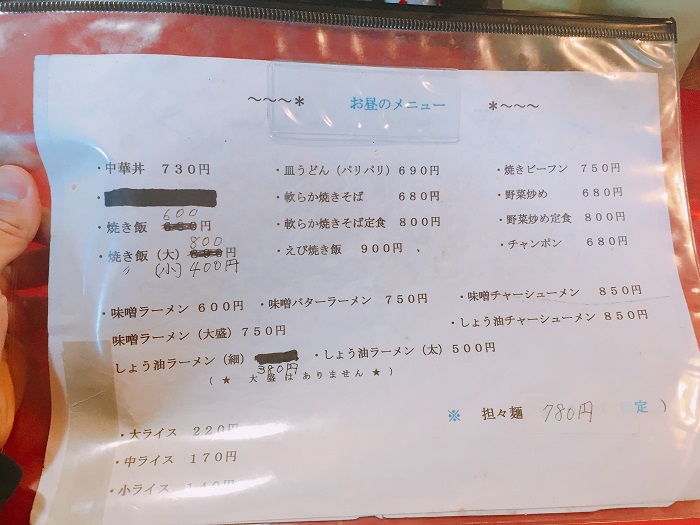 ～～～＊ お昼のメニュー ＊～～～
・中華丼 ７３０円
・皿うどん（パリパリ）６９０円
・焼きビーフン ７５０円
・軟らか焼きそば ６８０円
・野菜炒め ６８０円
600
・焼き飯 円
・軟らか焼きそば定食 ８００円
・野菜炒め定食 ８００円
800
・焼き飯（大） 円
・えび焼き飯 ９００円
・チャンポン ６８０円
〃 (小) 400円
・味噌ラーメン ６００円
・味噌バターラーメン ７５０円
・味噌チャーシューメン ８５０円
味噌ラーメン（大盛）７５０円
・しょう油チャーシューメン ８５０円
しょう油ラーメン（細）
・しょう油ラーメン（太）５００円
380円
（ ★ 大盛はありません ★ ）
※ 担々麺 780円 定 ）
・大ライス ２２０円
・中ライス １７０円
・小ライス １４０円